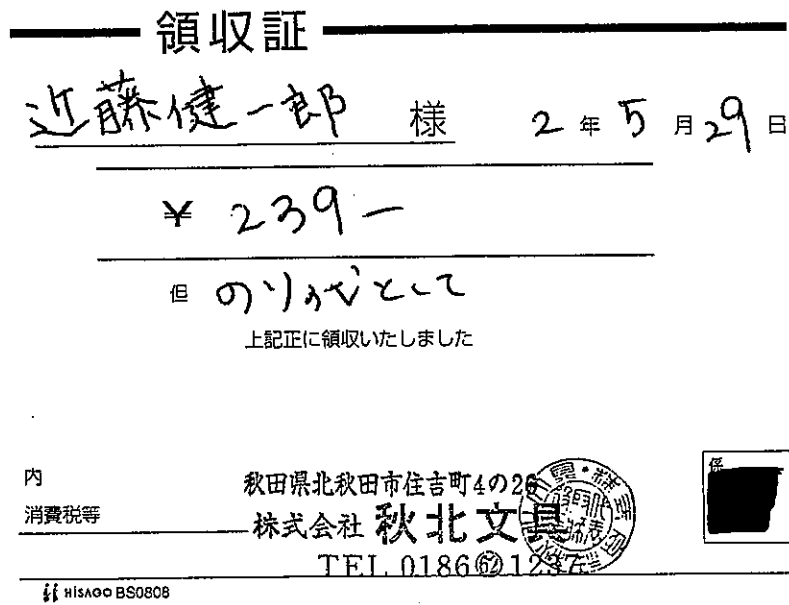 領収証
近藤健一郎 様 2年5月29日
¥ 239−
但 のり代として
上記正に領収いたしました
内
消費税等
係
秋田県北秋田市住吉町4の26
株式会社 秋北文具
TEL 0186㉒1237
HISAGO BS0808